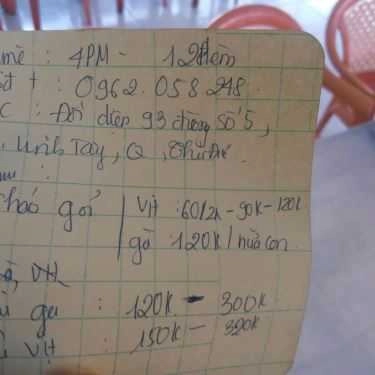 mê : 4PM - 12 đêm
đt : 0962.058.248
C : Đối diện 93 đường số 5,
Bình Trị Tây, Q
Cháo gỏi | Vịt : 60/2k - 90k - 120k
gà : 120k / nửa con
gà, vịt
gà : 120k - 300k
Vịt : 150k - 320k